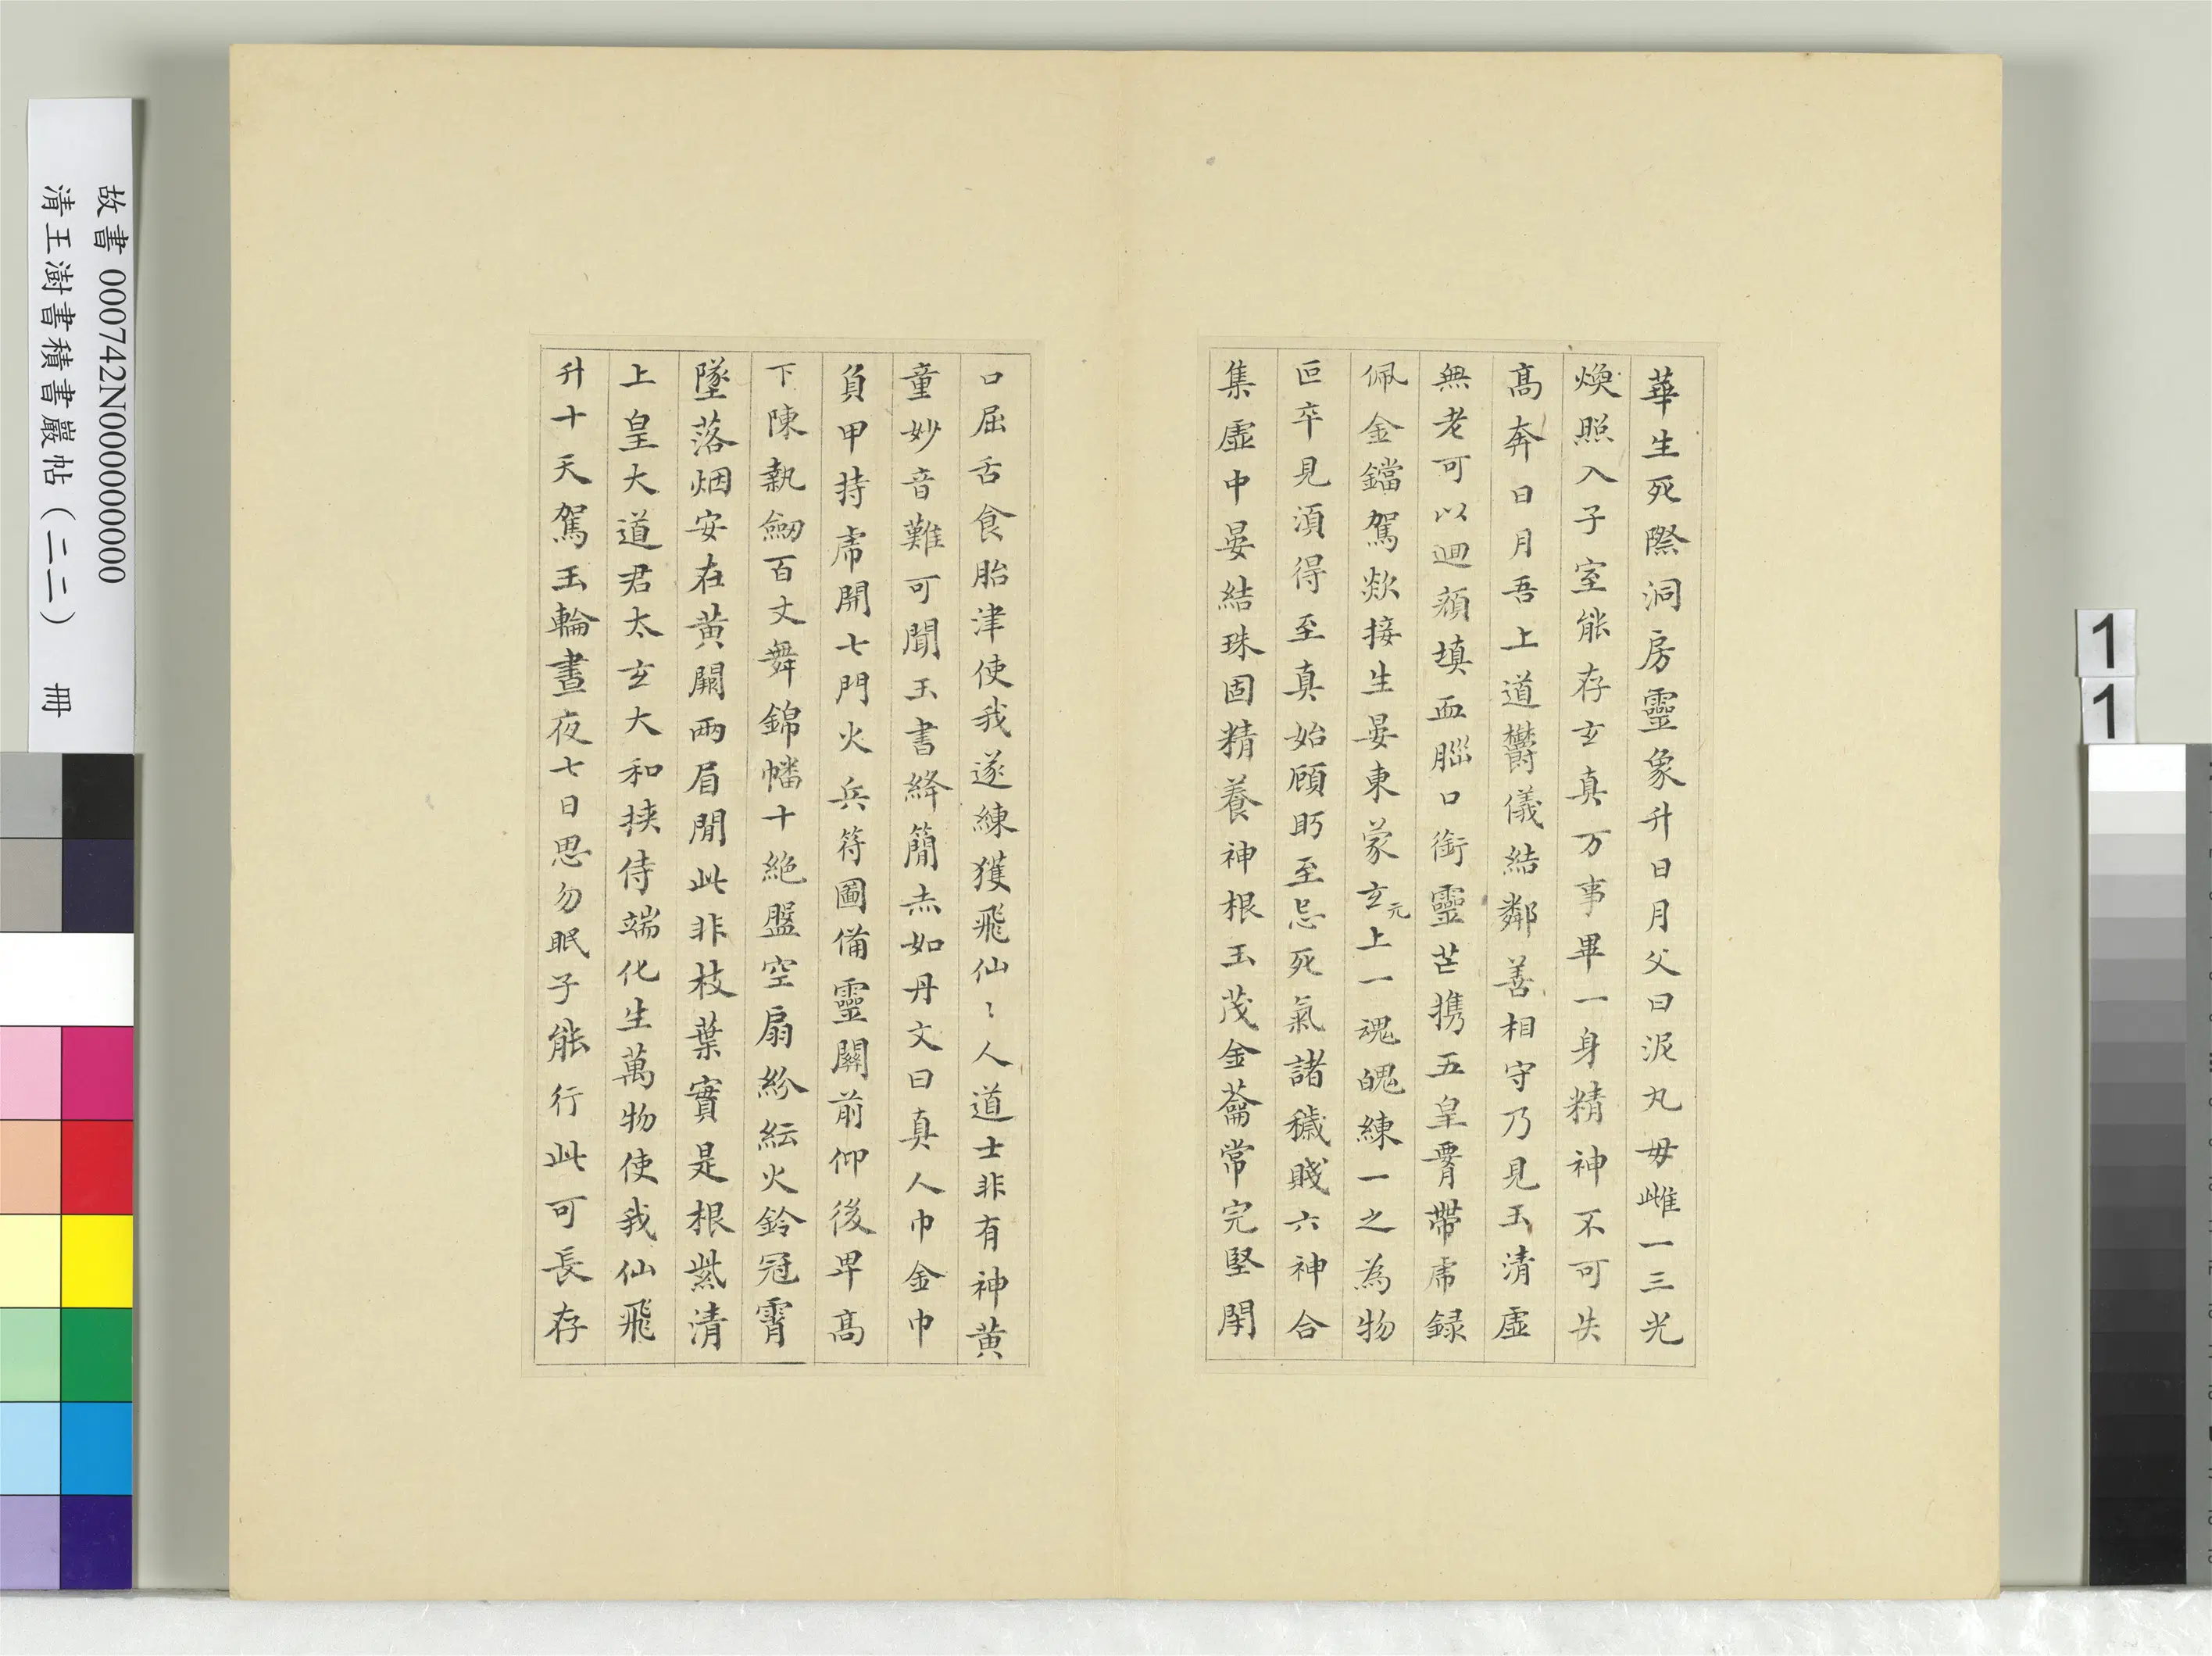 華生死際洞房靈象升日月父曰泥丸母雌一三光
煥照入子室能存玄真万事畢一身精神不可失
高奔日月吾上道欝儀結鄰善相守乃見玉清虛
無老可以迴顏填血腦口銜靈芒攜五皇要帶虎錄
佩金鐺駕欻接生晏東蒙玄元上一魂魄練一之為物
叵卒見須得至真始顧眄至忌死氣諸穢賤六神合
集虛中晏結珠固精養神根玉茂金籥常完堅閉
口屈舌食胎津使我遂練獲飛仙〻人道士非有神黃
童妙音難可聞玉書絳簡赤如丹文曰真人巾金巾
負甲持虎開七門火兵符圖備靈關前仰後卑高
下陳執劒百丈舞錦幡十絕盤空扇紛紜火鈴冠霄
墜落烟安在黃闕兩眉閒此非枝葉實是根紫清
上皇大道君太玄大和挾侍端化生萬物使我仙飛
升十天駕玉輪晝夜七日思勿眠子能行此可長存
故書 000742N000000000
清王澍書積書巖帖（二二） 冊
1
1